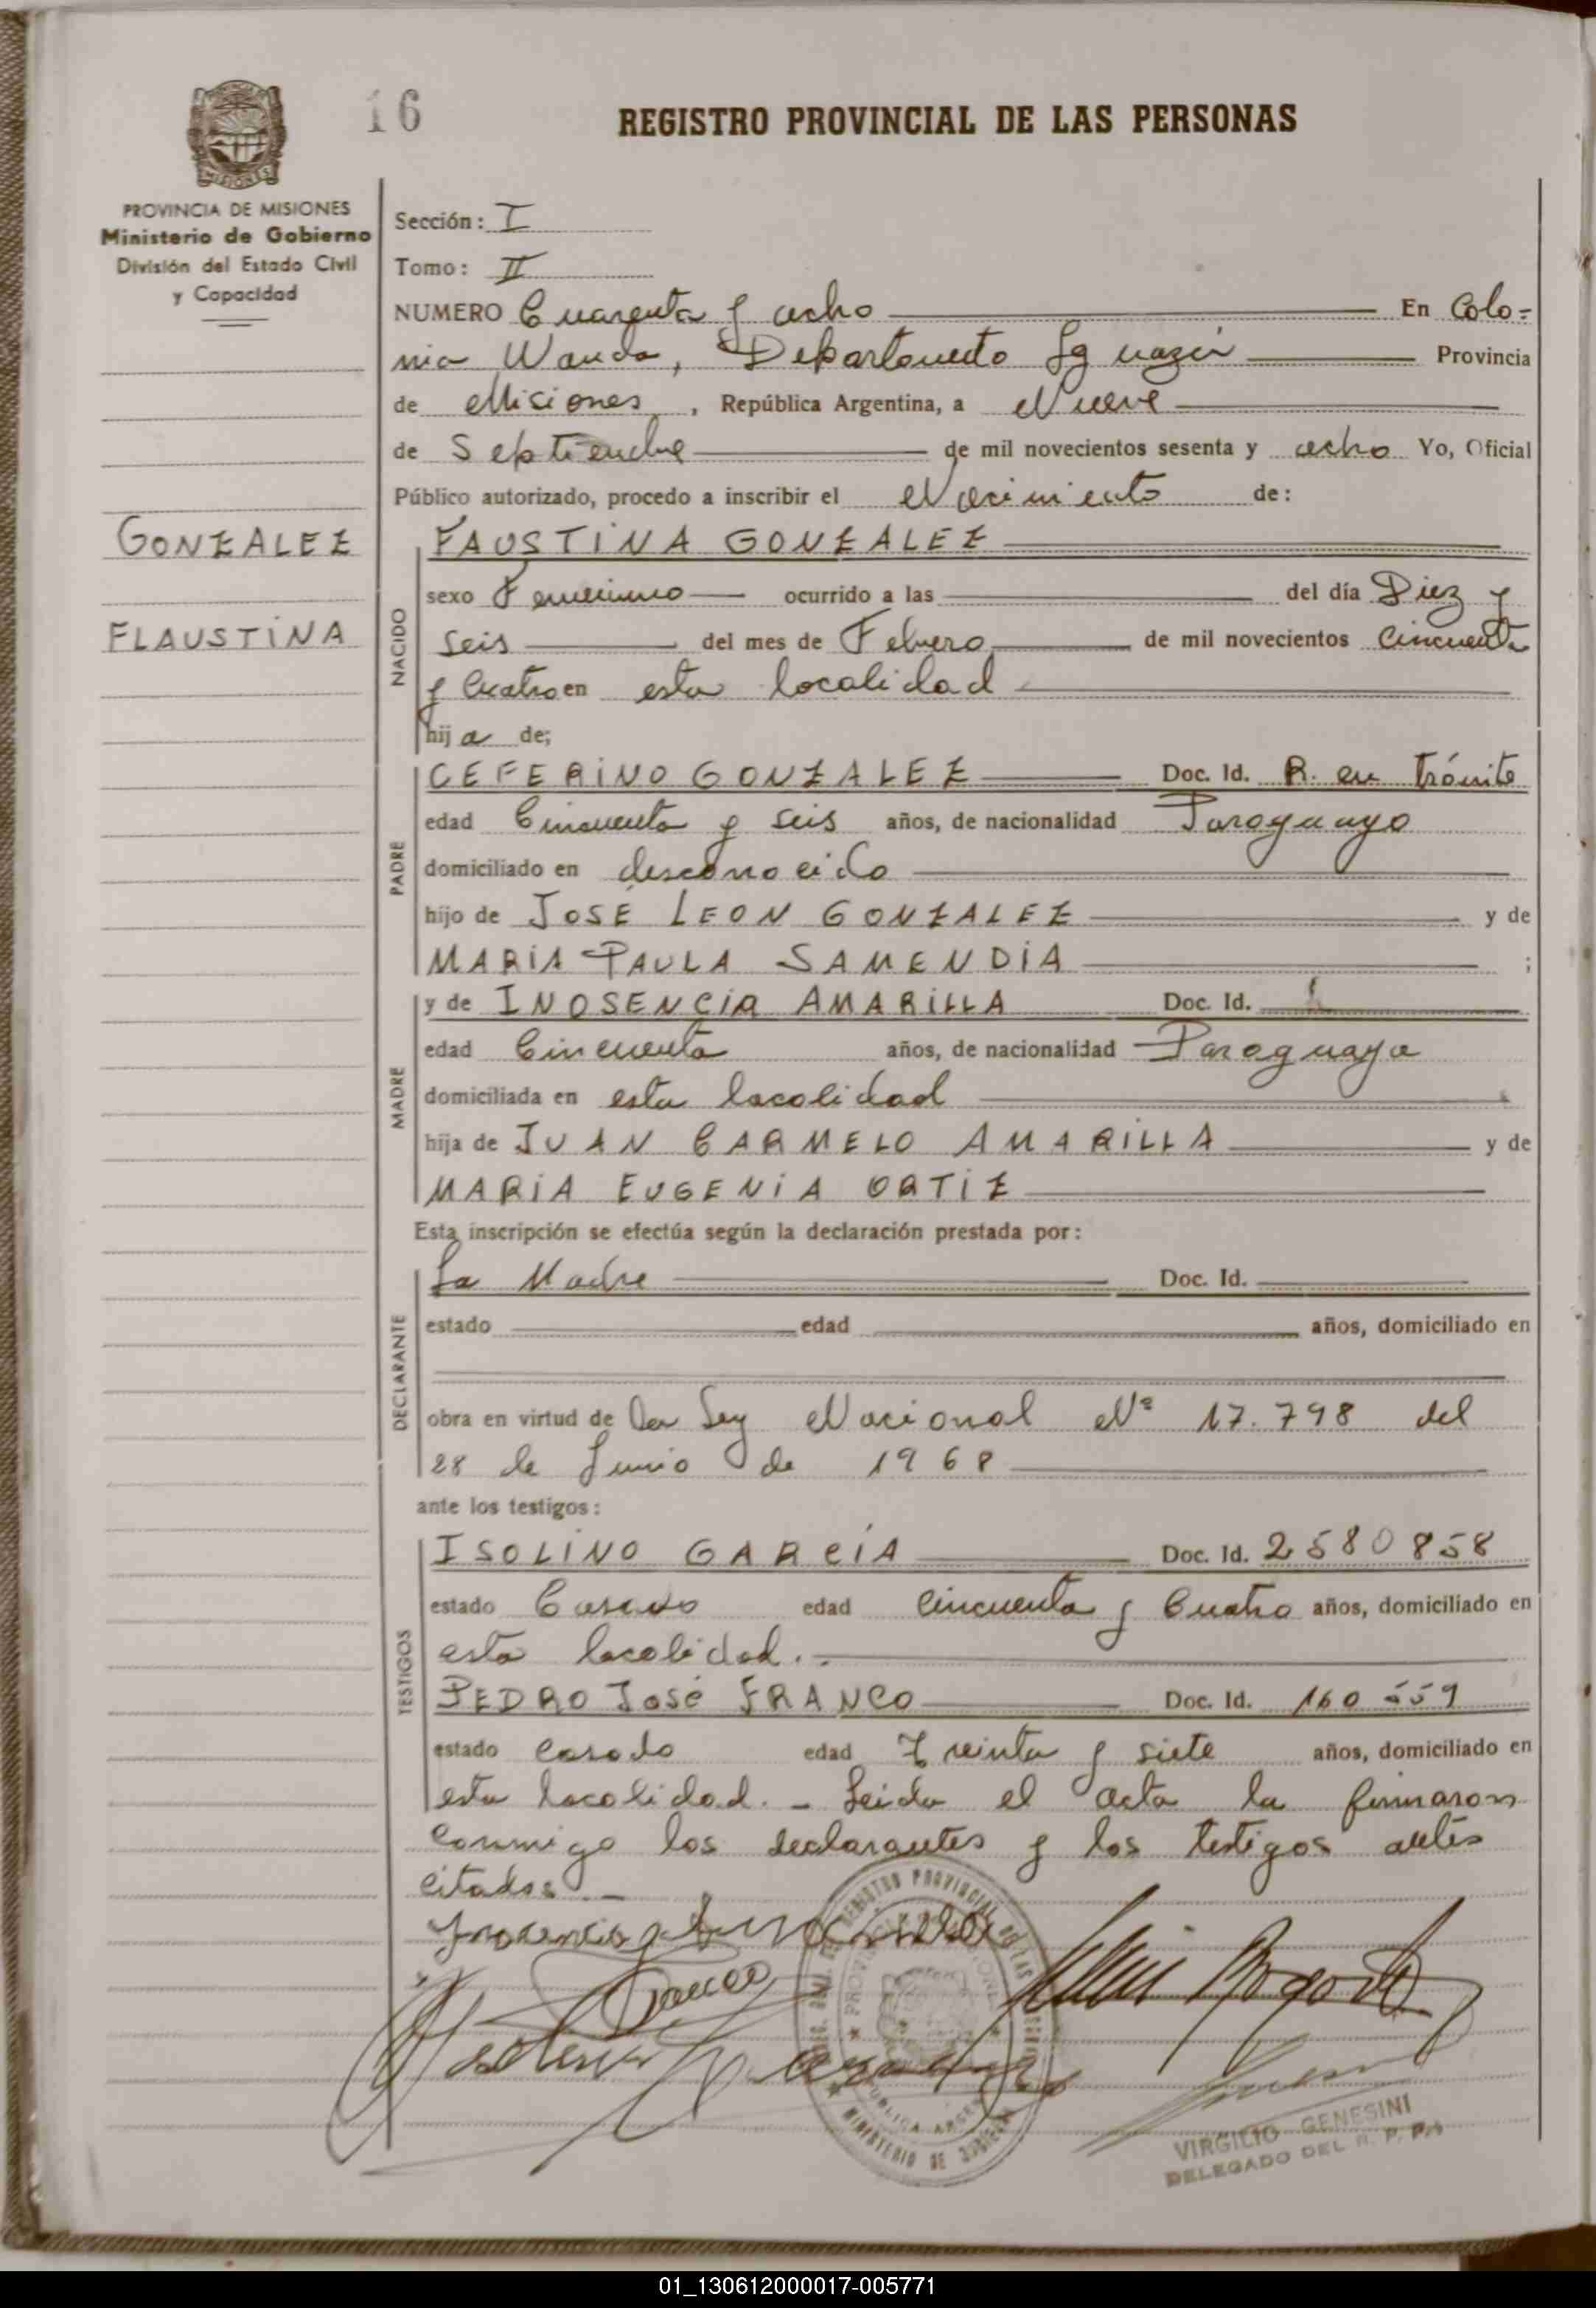 16
REGISTRO PROVINCIAL DE LAS PERSONAS
MISIONES
PROVINCIA DE MISIONES
Ministerio de Gobierno
División del Estado Civil
y Capacidad
Sección: I
Tomo: II
NUMERO Cuarenta y ocho En Colo=
nia Wanda, Departamento Iguazú Provincia
de Misiones, República Argentina, a Nueve
de Septiembre de mil novecientos sesenta y ocho Yo, Oficial
Público autorizado, procedo a inscribir el Nacimiento de:
GONZALEZ
FLAUSTINA
NACIDO
FAUSTINA GONZALEZ
sexo Femenino ocurrido a las del día Diez y
seis del mes de Febrero de mil novecientos Cincuenta
y Cuatro en esta localidad
hija de;
PADRE
CEFERINO GONZALEZ Doc. Id. R. en trámite
edad Cincuenta y seis años, de nacionalidad Paraguayo
domiciliado en desconocido
hijo de JOSE LEON GONZALEZ y de
MARIA PAULA SAMENDIA ;
MADRE
y de INOSENCIA AMARILLA Doc. Id.
edad Cincuenta años, de nacionalidad Paraguaya
domiciliada en esta localidad
hija de JUAN CARMELO AMARILLA y de
MARIA EUGENIA ORTIZ
Esta inscripción se efectúa según la declaración prestada por:
DECLARANTE
La Madre Doc. Id.
estado edad años, domiciliado en
obra en virtud de la Ley Nacional Nº 17.798 del
28 de Junio de 1968
ante los testigos:
TESTIGOS
ISOLINO GARCÍA Doc. Id. 2580858
estado Casado edad Cincuenta y Cuatro años, domiciliado en
esta localidad.-
PEDRO José FRANCO Doc. Id. 160559
estado casado edad Treinta y siete años, domiciliado en
esta localidad. - Leida el acta la firmaron
conmigo los declarantes y los testigos antes
citados.-
VIRGILIO GENESINI
DELEGADO DEL R. P. P.
01_130612000017-005771